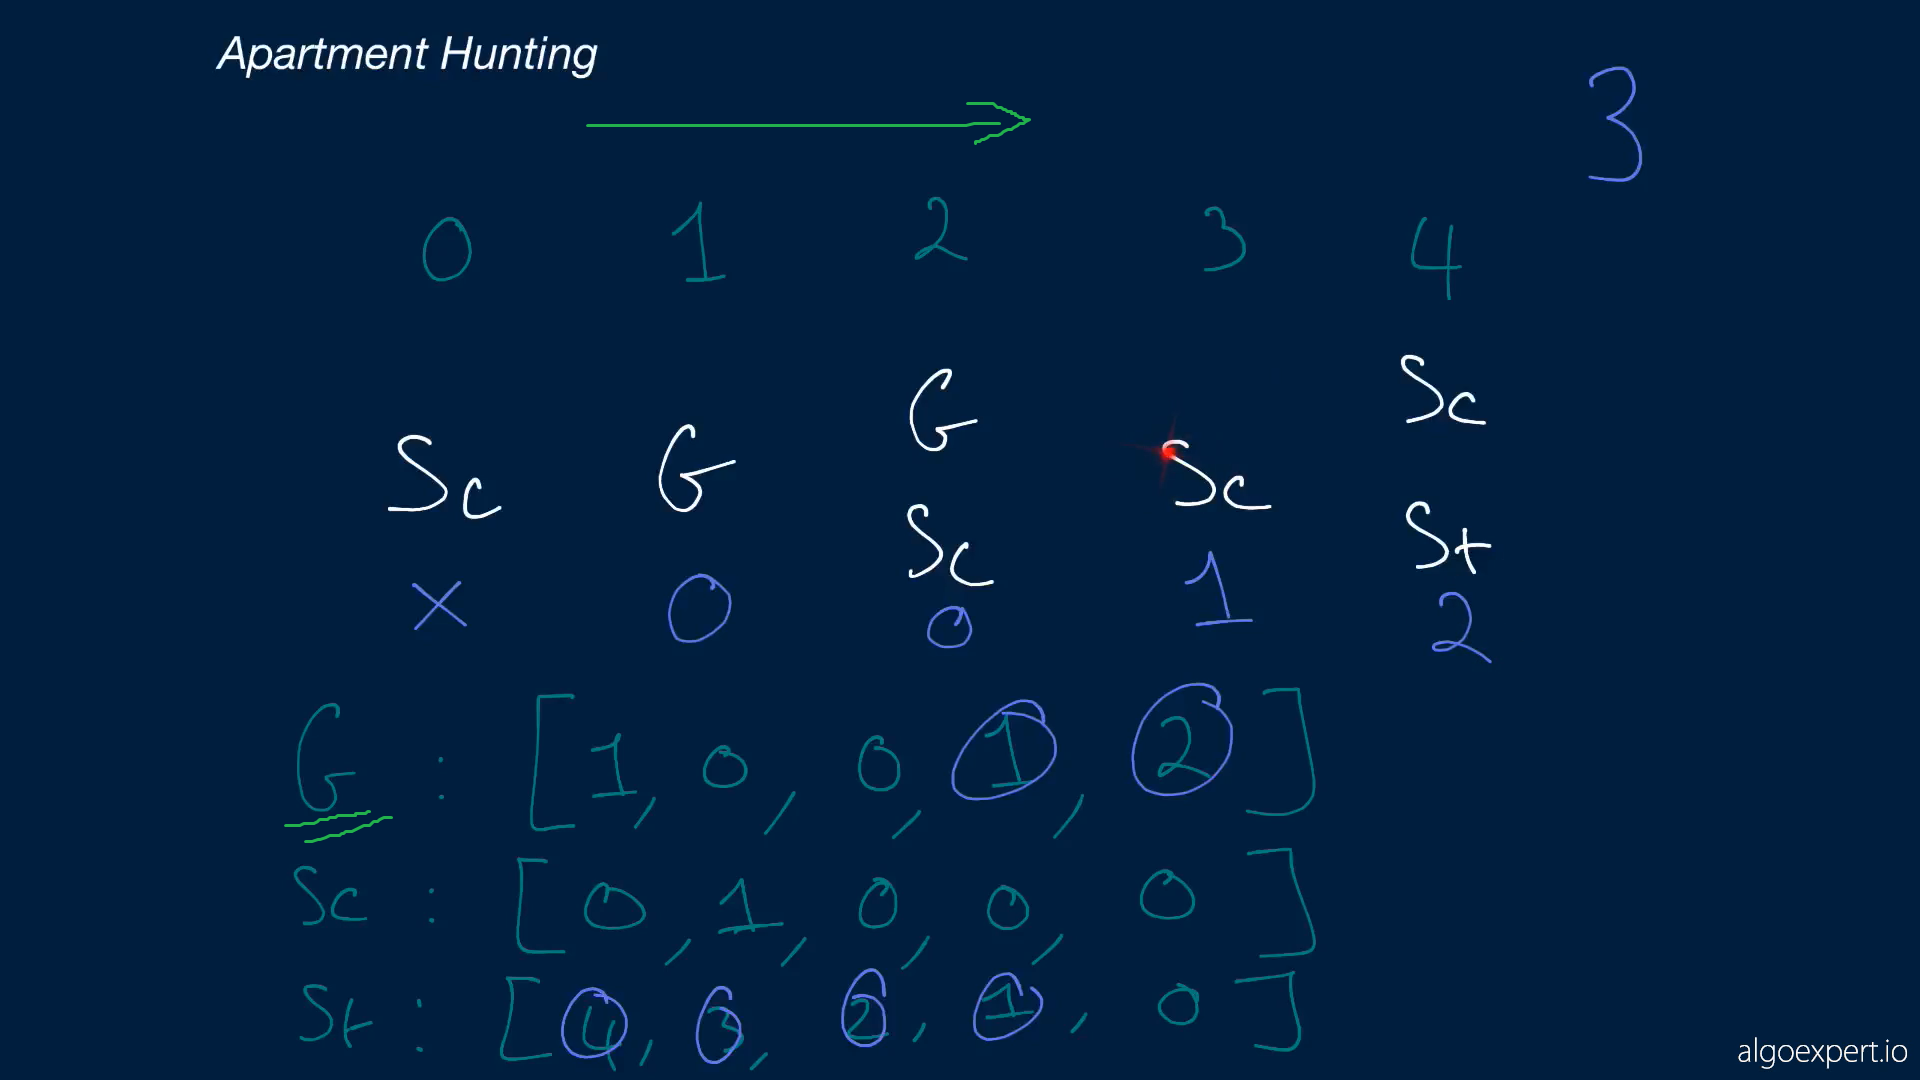 Apartment Hunting
3
0 1 2 3 4
Sc G G Sc Sc
Sc St
X 0 0 1 2
G : [1, 0, 0, 1, 2]
Sc : [0, 1, 0, 0, 0]
St : [4, 3, 2, 1, 0]
algoexpert.io